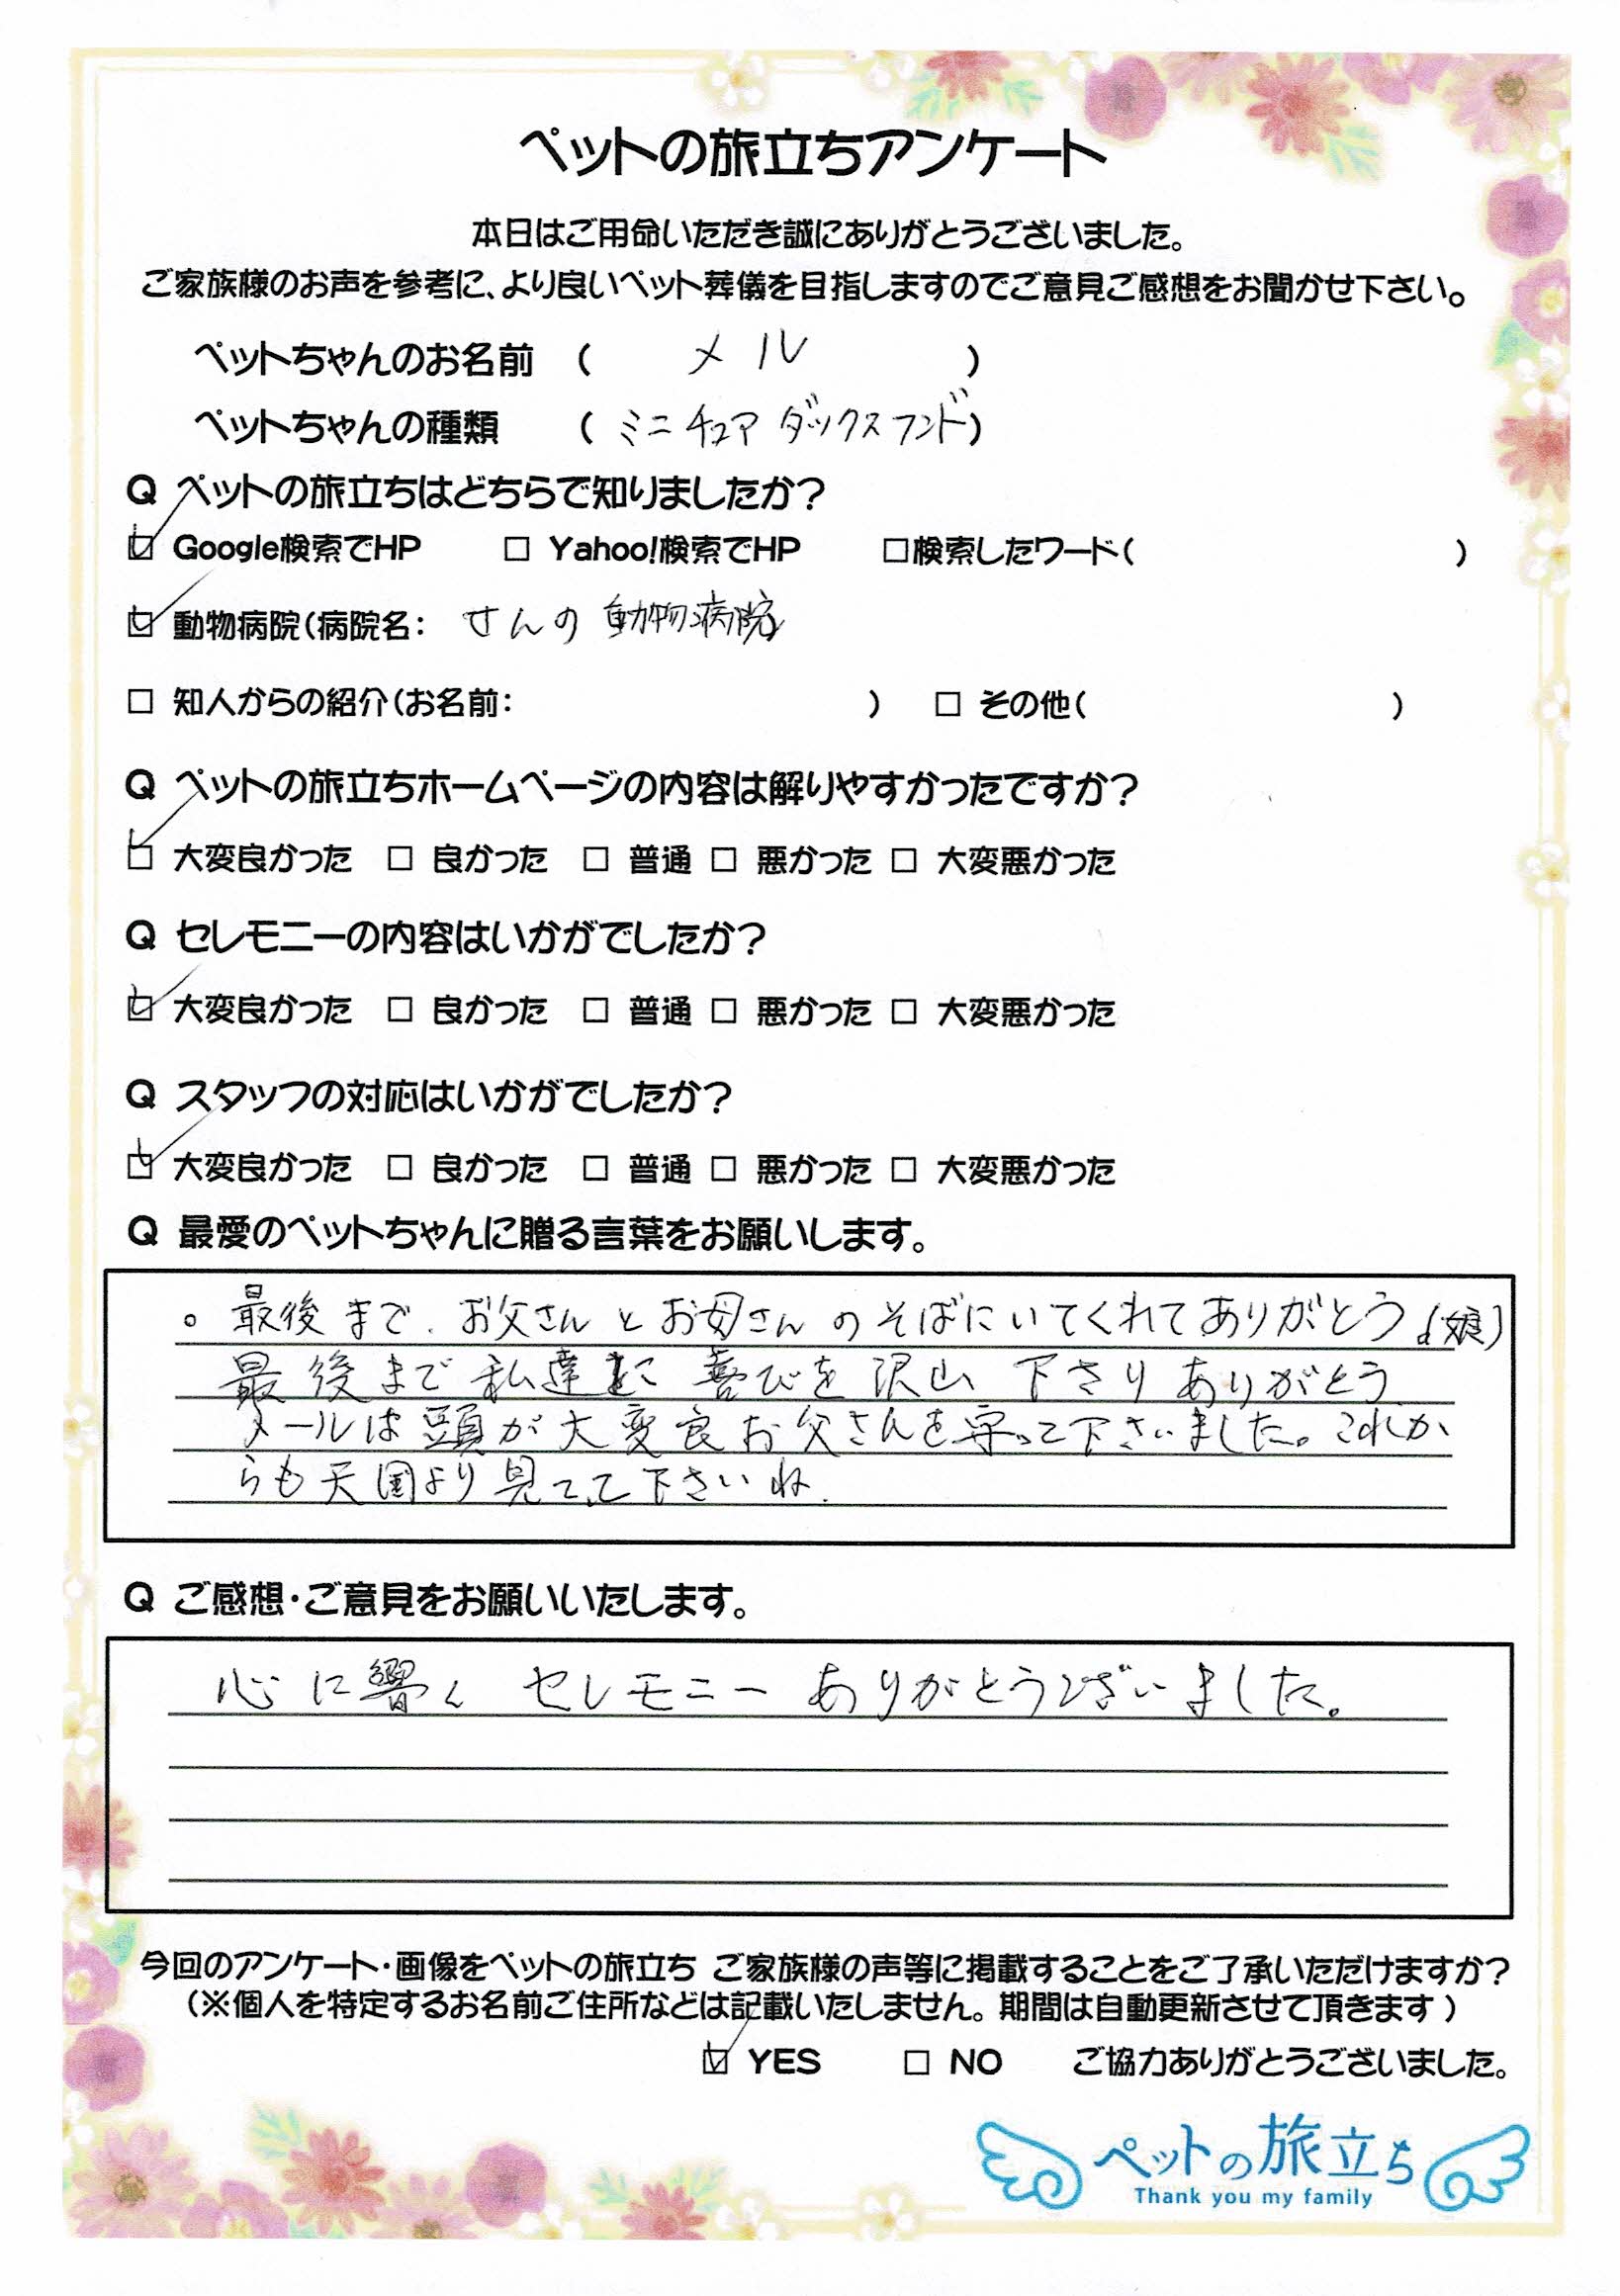 ペットの旅立ちアンケート
本日はご用命いただき誠にありがとうございました。
ご家族様のお声を参考に、より良いペット葬儀を目指しますのでご意見ご感想をお聞かせ下さい。
ペットちゃんのお名前 ( メル )
ペットちゃんの種類 ( ミニチュアダックスフンド )
Q ペットの旅立ちはどちらで知りましたか?
☑ Google検索でHP □ Yahoo!検索でHP □検索したワード( )
☑ 動物病院(病院名: せんの動物病院
□ 知人からの紹介(お名前: ) □ その他( )
Q ペットの旅立ちホームページの内容は解りやすかったですか?
☑ 大変良かった □ 良かった □ 普通 □ 悪かった □ 大変悪かった
Q セレモニーの内容はいかがでしたか?
☑ 大変良かった □ 良かった □ 普通 □ 悪かった □ 大変悪かった
Q スタッフの対応はいかがでしたか?
☑ 大変良かった □ 良かった □ 普通 □ 悪かった □ 大変悪かった
Q 最愛のペットちゃんに贈る言葉をお願いします。
。最後まで、お父さんとお母さんのそばにいてくれてありがとう♩(娘)
最後まで私達に喜びを沢山下さりありがとう
メールは頭が大変良お父さんを守って下さいました。これか
らも天国より見てて下さいね.
Q ご感想・ご意見をお願いいたします。
心に響くセレモニーありがとうございました。
今回のアンケート・画像をペットの旅立ち ご家族様の声等に掲載することをご了承いただけますか?
(※個人を特定するお名前ご住所などは記載いたしません。期間は自動更新させて頂きます)
☑ YES □ NO ご協力ありがとうございました。
ペットの旅立ち
Thank you my family